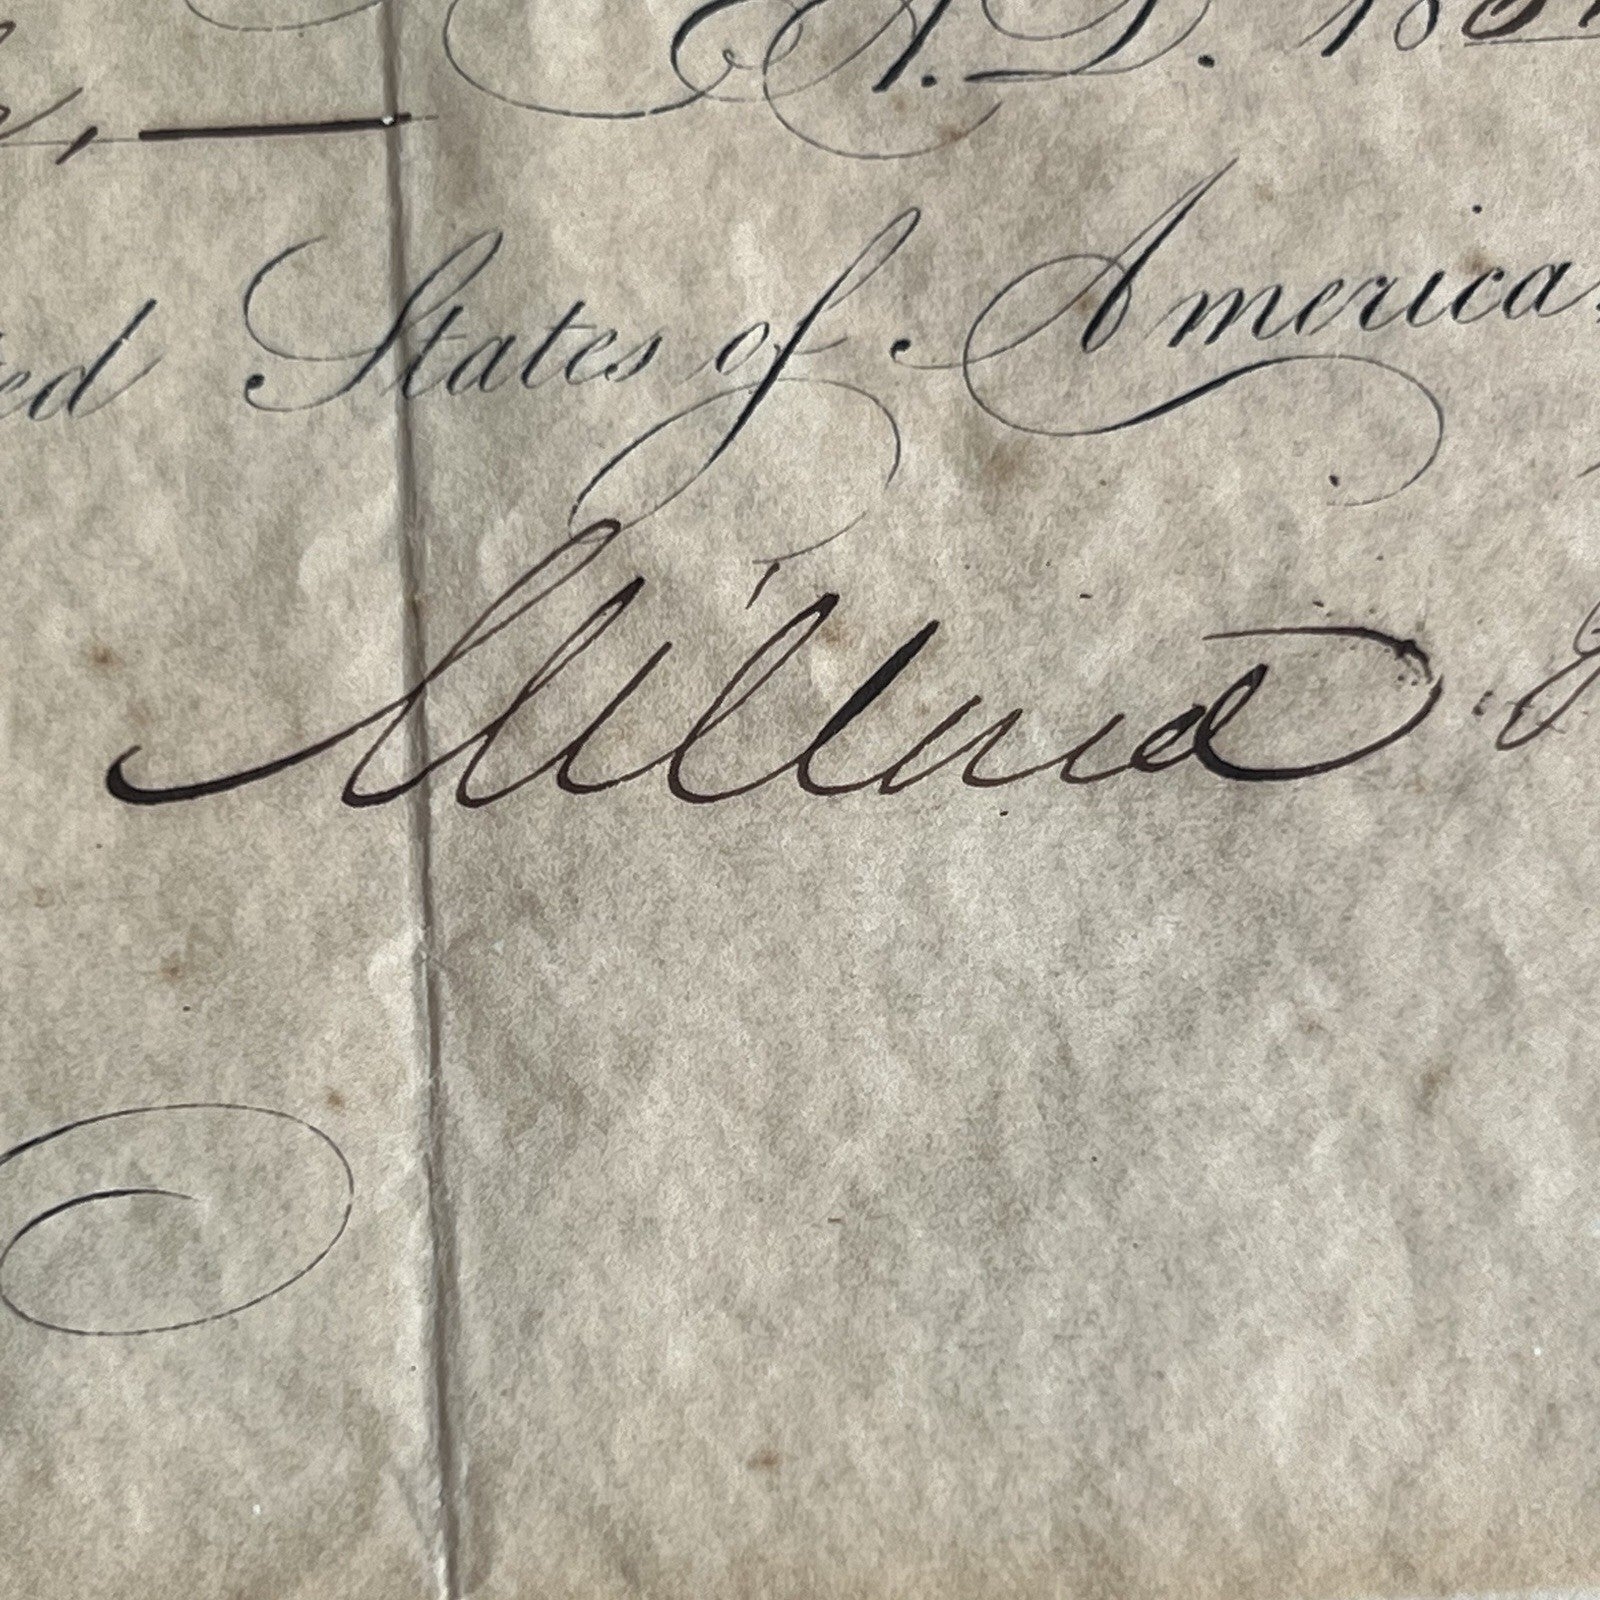 A.D. 18
ed States of America
Millard